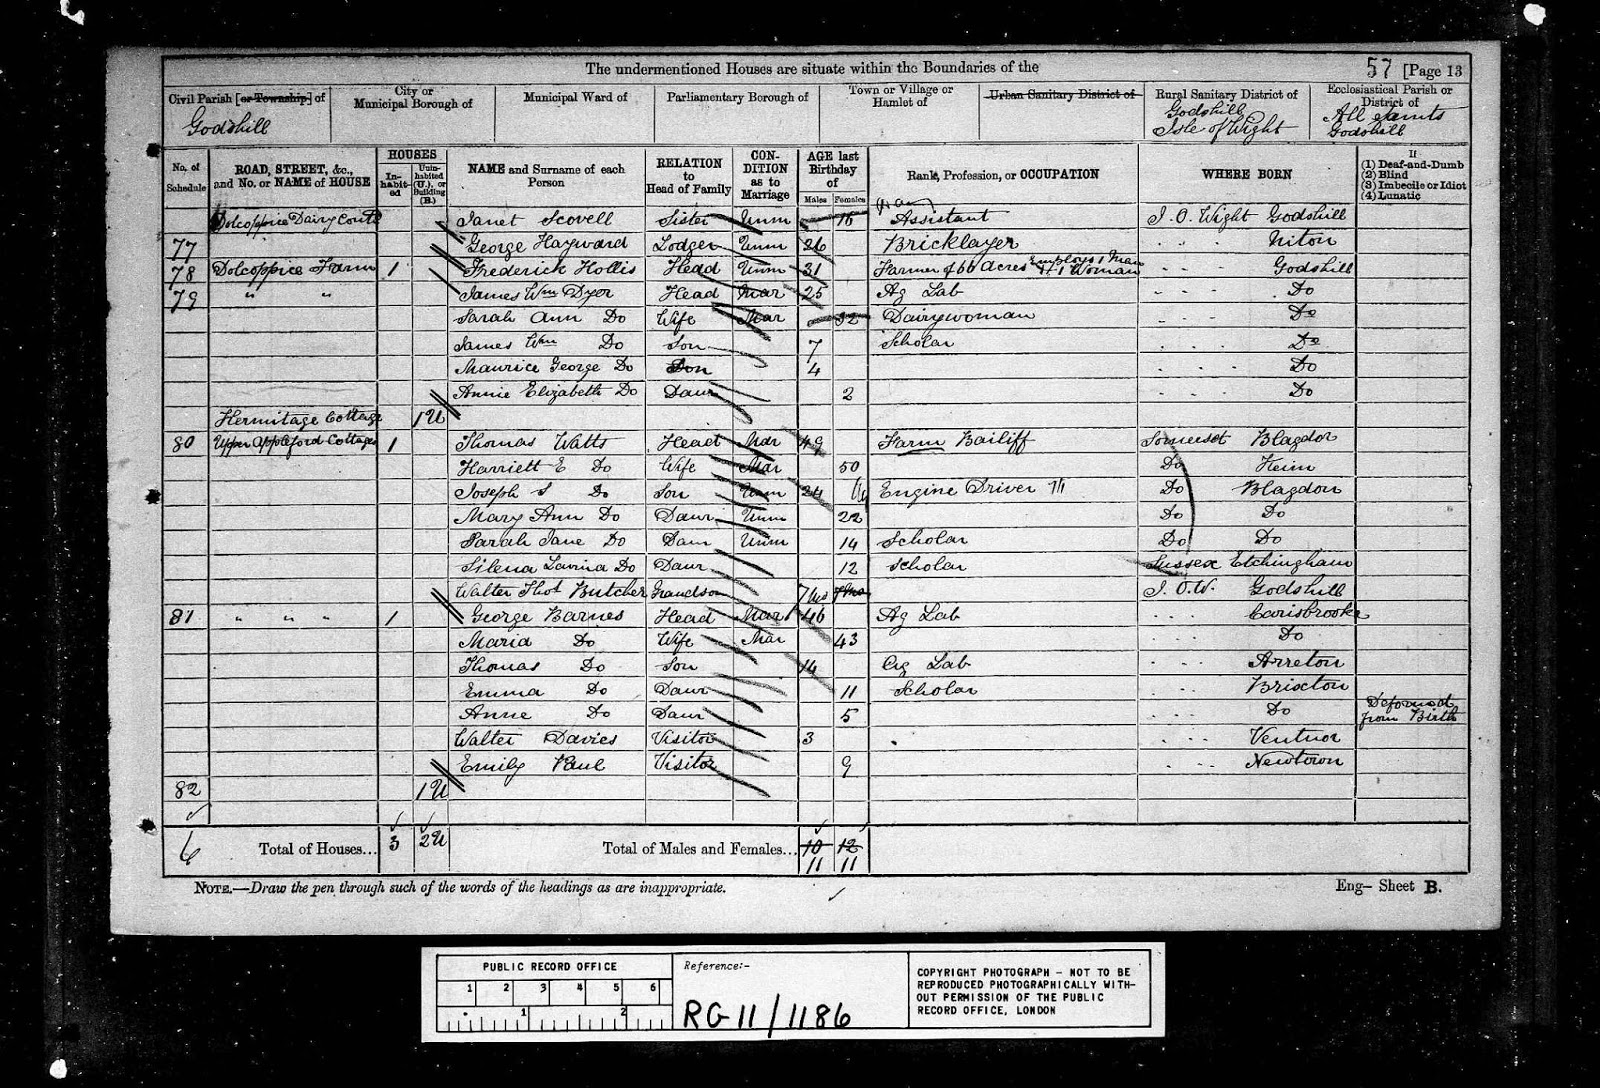 The undermentioned Houses are situate within the Boundaries of the 57 [Page 13
Civil Parish [or Township] of City or Municipal Borough of Municipal Ward of Parliamentary Borough of Town or Village or Hamlet of Urban Sanitary District of Rural Sanitary District of Ecclesiastical Parish or District of
Godshill Godshill Isle of Wight All Saints Godshill
No. of Schedule ROAD, STREET, &c., and No. or NAME of HOUSE HOUSES Inhabited Uninhabited (U.), or Building (B.) NAME and Surname of each Person RELATION to Head of Family CONDITION as to Marriage AGE last Birthday of Males Females Rank, Profession, or OCCUPATION WHERE BORN If (1) Deaf-and-Dumb (2) Blind (3) Imbecile or Idiot (4) Lunatic
Dolcoppice Dairy Contd Janet Scovell Sister Unmm Assistant I. O. Wight Godshill
77 George Hayward Lodger Unmm 26 Bricklayer " " Niton
78 Dolcoppice Farm 1 Frederick Hollis Head Unmm 31 Farmer of 66 Acres Employs 1 Man + 1 Woman Godshill
79 " " James Wm Dyer Head Mar 25 Ag Lab Do
Sarah Ann Do Wife Mar 32 Dairywoman Do
James Wm Do Son 7 Scholar Do
Maurice George Do Son 4 Do
Annie Elizabeth Do Daur 2 Do
Hermitage Cottage 1 U
80 Upper Appleford Cottages 1 Thomas Watts Head Mar 49 Farm Bailiff Somerset Blagdon
Harriett E Do Wife Mar 50 Do
Joseph S Do Son Unmm 24 Engine Driver Do Blagdon
Mary Ann Do Daur Unmm 22 Do Do
Sarah Jane Do Daur Unmm 14 Scholar Do Do
Silena Lavina Do Daur 12 Scholar Sussex Etchingham
Walter Thos Butcher Grandson 7 Mos 7 Mos I. O. W. Godshill
81 " " " 1 George Barnes Head Mar 46 Ag Lab Carisbrooke
Maria Do Wife Mar 43 Do
Thomas Do Son 14 Ag Lab Arreton
Emma Do Daur 11 Scholar Brixton
Annie Do Daur 5 Do Deformed from Birth
Walter Davies Visitor 3 Ventnor
Emily Paul Visitor 9 Newtown
82 1 U
6 Total of Houses... 3 2 U Total of Males and Females... 10 12
11 11
NOTE.—Draw the pen through such of the words of the headings as are inappropriate. Eng- Sheet B.
PUBLIC RECORD OFFICE
1 2 3 4 5 6
1 2
Reference:-
RG 11/1186
COPYRIGHT PHOTOGRAPH - NOT TO BE
REPRODUCED PHOTOGRAPHICALLY WITH-
OUT PERMISSION OF THE PUBLIC
RECORD OFFICE, LONDON